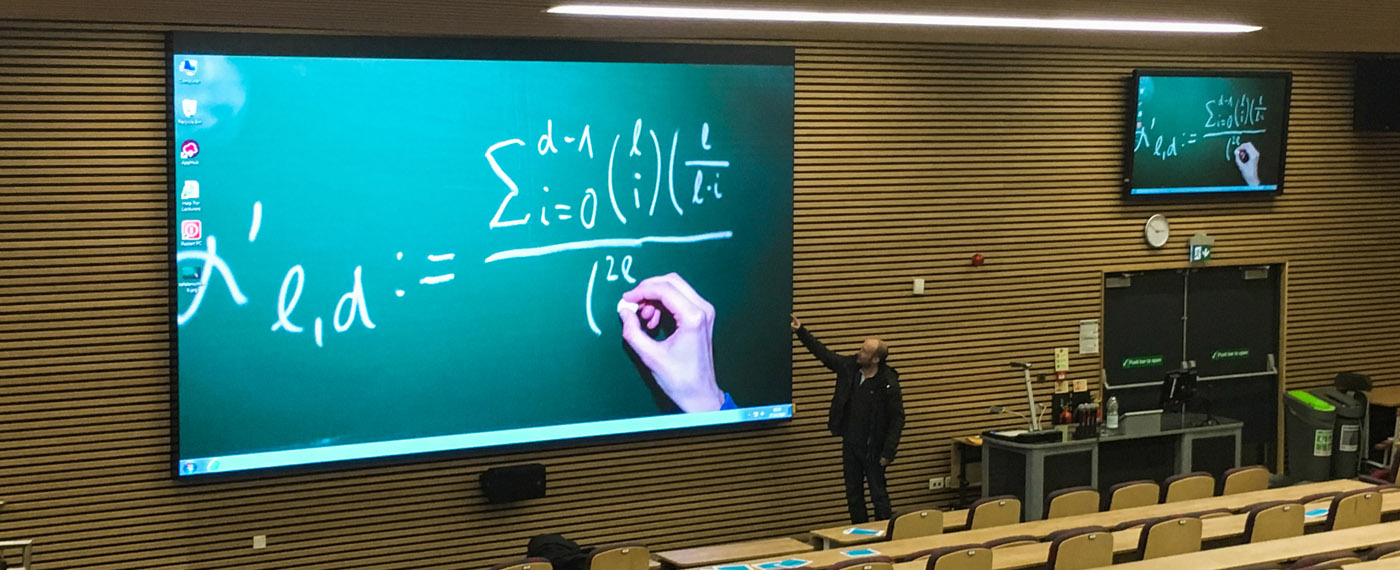 Computer
Recycle Bin
AppHub
Help For Lecturers
Restart PC
λ'ℓ,d := ∑ i=0 d-1 (ℓ i)(ℓ / ℓ·i
(2ℓ
Push bar to open
Push bar to open